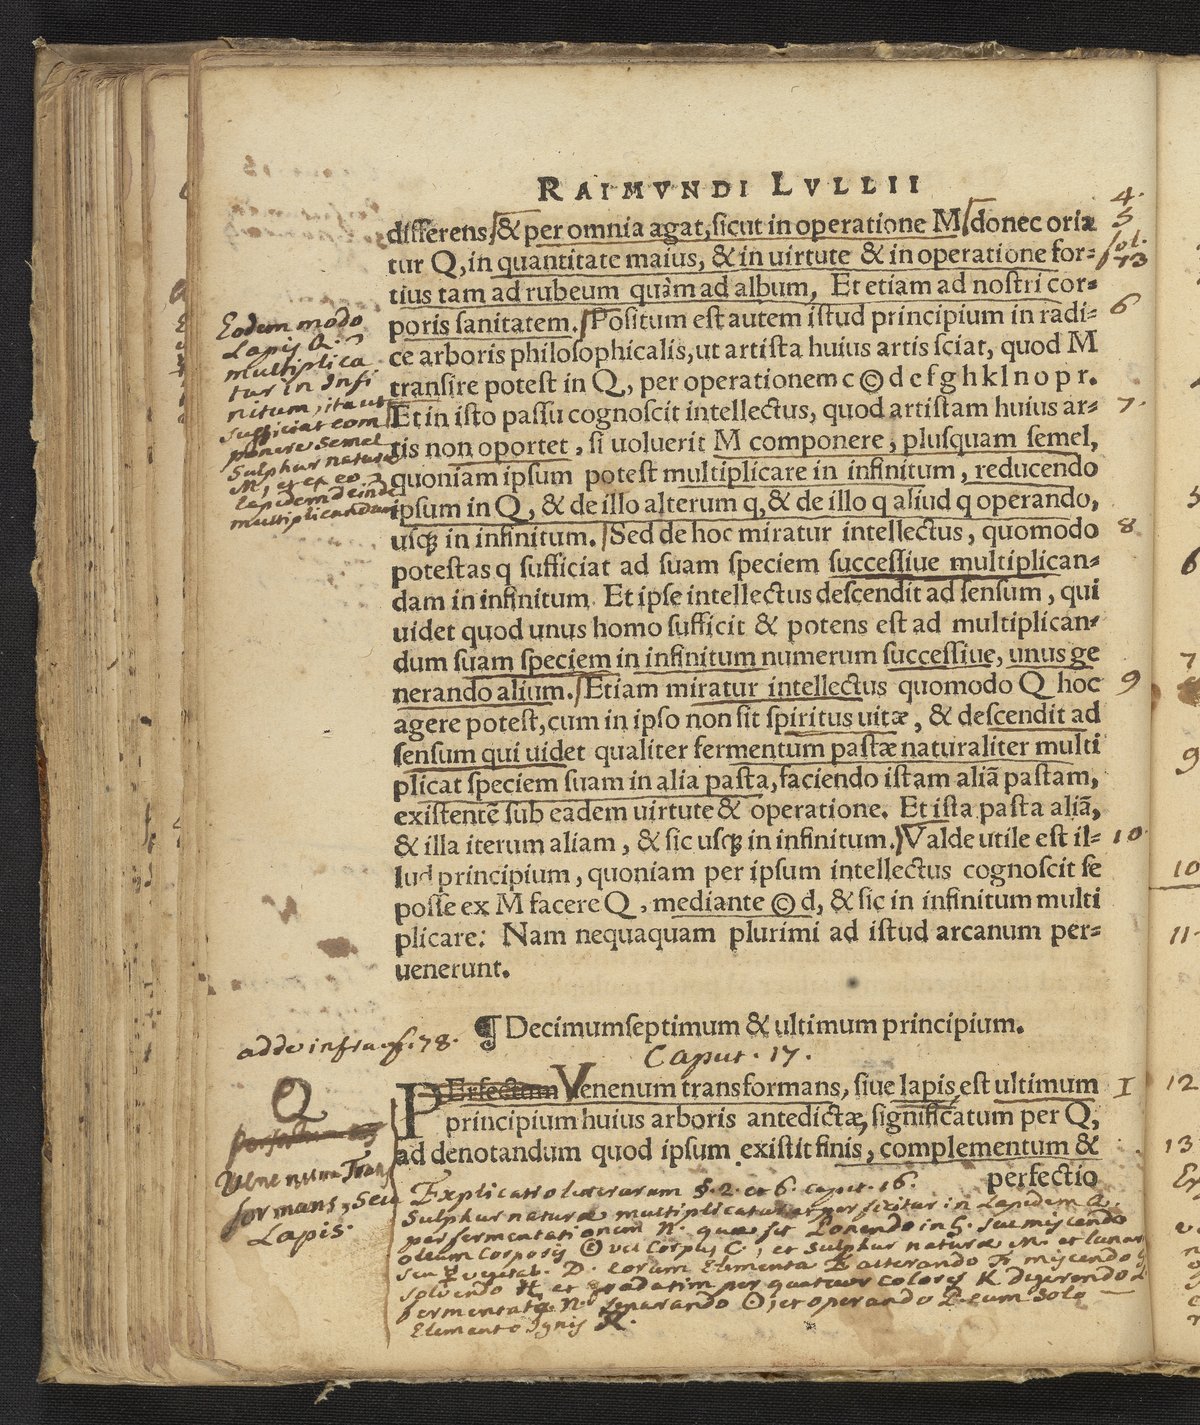 RAIMVNDI LVLLII
4.
differens, & per omnia agat, sicut in operatione M, donec oria 5
tur Q, in quantitate maius, & in uirtute & in operatione for- fol. 73
tius tam ad rubeum quàm ad album, Et etiam ad nostri cor-
poris sanitatem. Positum est autem istud principium in radi- 6
ce arboris philosophicalis, ut artista huius artis sciat, quod M
transire potest in Q, per operationem c © d e f g h k l n o p r.
Et in isto passu cognoscit intellectus, quod artistam huius ar- 7.
tis non oportet, si uoluerit M componere, plusquam semel,
quoniam ipsum potest multiplicare in infinitum, reducendo
ipsum in Q, & de illo alterum q, & de illo q aliud q operando,
usqȝ in infinitum. Sed de hoc miratur intellectus, quomodo 8
potestas q sufficiat ad suam speciem successiue multiplican-
dam in infinitum. Et ipse intellectus descendit ad sensum, qui
uidet quod unus homo sufficit & potens est ad multiplican-
dum suam speciem in infinitum numerum successiue, unus ge
nerando alium. Etiam miratur intellectus quomodo Q hoc 9
agere potest, cum in ipso non sit spiritus uitæ, & descendit ad
sensum qui uidet qualiter fermentum pastæ naturaliter multi
plicat speciem suam in alia pasta, faciendo istam aliã pastam,
existentẽ sub eadem uirtute & operatione. Et ista pasta aliã,
& illa iterum aliam, & sic usqȝ in infinitum. Valde utile est il- 10
lud principium, quoniam per ipsum intellectus cognoscit se
posse ex M facere Q, mediante © d, & sic in infinitum multi
plicare: Nam nequaquam plurimi ad istud arcanum per-
uenerunt.
Eodem modo
Lapis Q.
multiplica
tur in Infi
nitum, ita ut
sufficiat com
ponere semel
Sulphur naturæ
M, et ex eo
lapidem deinde
multiplicandum
¶ Decimumseptimum & ultimum principium.
adde infra f. 78.
Caput. 17.
PErfectum Venenum transformans, siue lapis, est ultimum 1
principium huius arboris antedictæ, significatum per Q,
ad denotandum quod ipsum existit finis, complementum &
perfectio
Q
Venenum Trans
formans, seu
Lapis.
Explicatio literarum §. 2. et 6. caput. 16.
Sulphur naturæ multiplicatur et perficitur in Lapidem Q.
per fermentationem N. quæ fit Ponendo in G. seu miscendo
oleum Corporis © vel Corpus C, et Sulphur naturæ M. et lunare
D. eorum Elementa E alterando F. miscendo G
solvendo H, et gradatim per quatuor colores K digerendo L
fermentata N. separando O, et operando P. cum Solo
Elemento Ignis R.
5
6
7
9
10
11
12
13